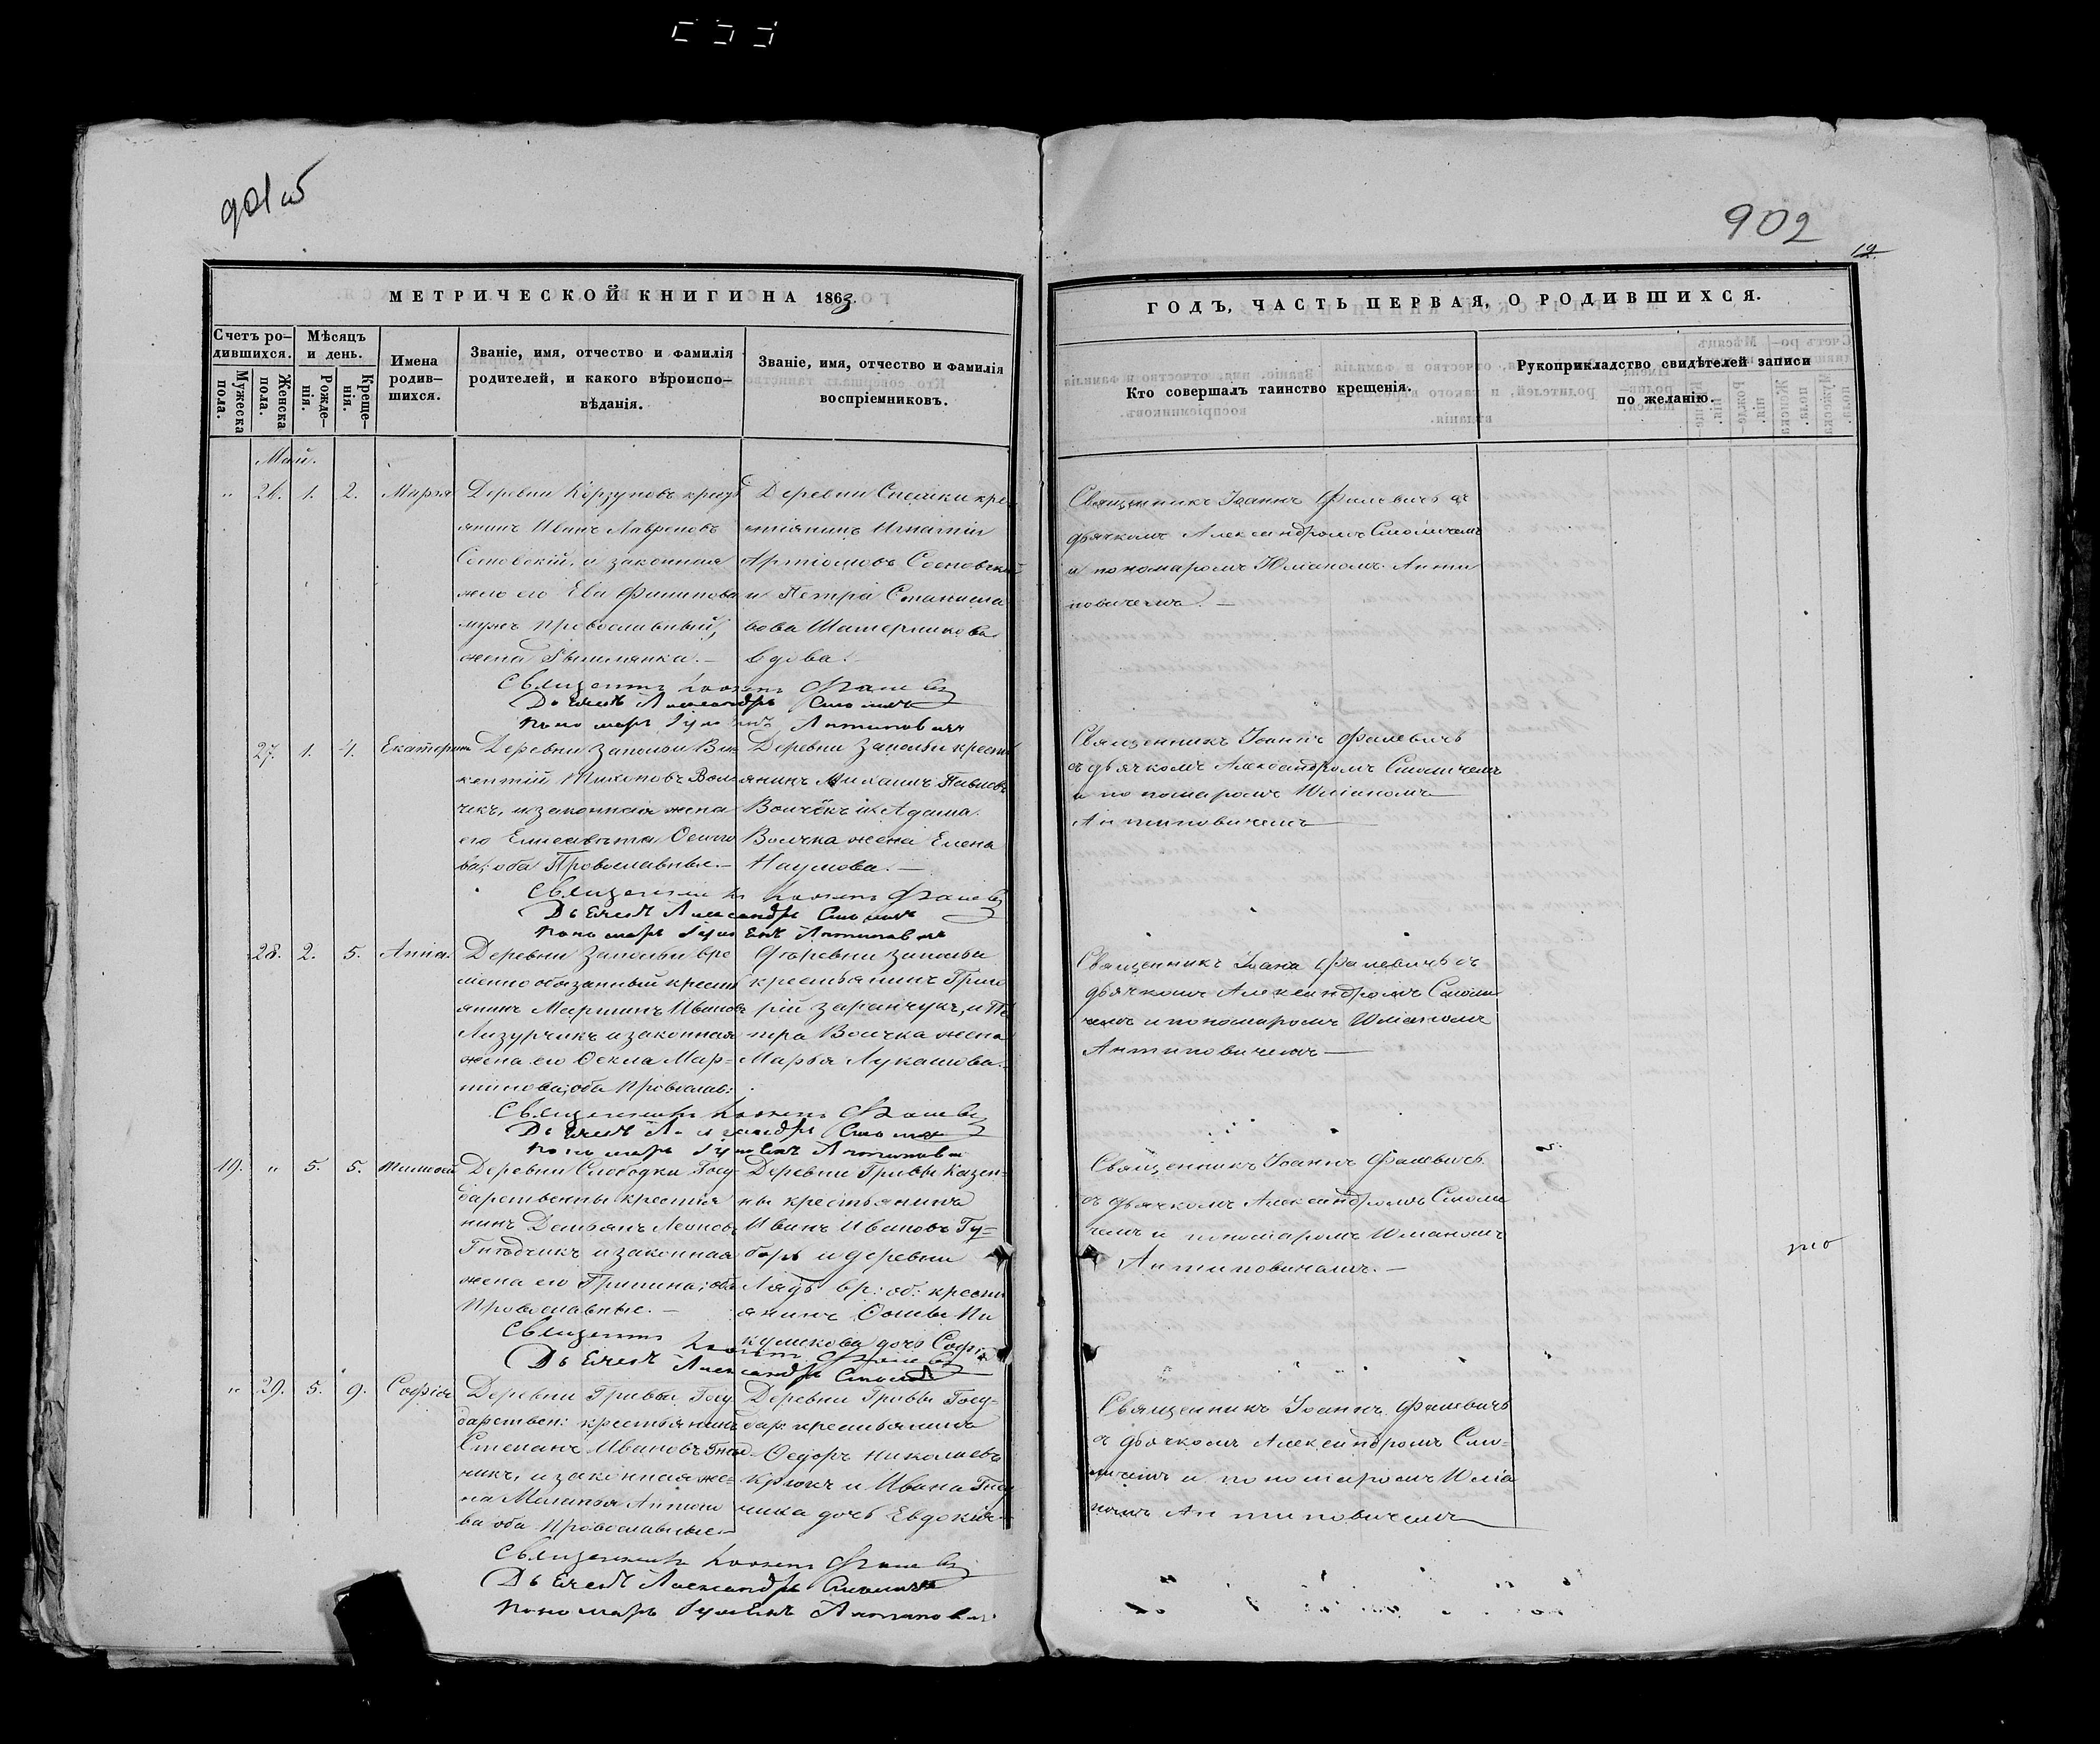 901 об
902
12
МЕТРИЧЕСКОЙ КНИГИ НА 1863.
ГОДЪ, ЧАСТЬ ПЕРВАЯ, О РОДИВШИХСЯ.
Счетъ родившихся.
Мужеска пола.
Женска пола.
Мѣсяцъ и день.
Рожденія.
Крещенія.
Имена родившихся.
Званіе, имя, отчество и фамилія родителей, и какого вѣроисповѣданія.
Званіе, имя, отчество и фамилія воспріемниковъ.
Кто совершалъ таинство крещенія.
Рукоприкладство свидѣтелей записи по желанію.
Май.
" 26. 1. 2. Марья
Деревни Корзуновъ крест
янинъ Иванъ Лавреновъ
Сосновскій, и законная
жена его Ева Филипова
мужъ православный,
жена Римлянка.—
Деревни Спсички кре
стіянинъ Игнатій
Артіомовъ Сосновскій
и Петра Станисла
вова Шатерникова
вдова.
Священникъ Іоаннъ Фалевичъ съ
дьячкомъ Александромъ Смоличемъ
и пономаромъ Юліаномъ Анти
повичемъ.—
Священникъ Іоаннъ Фалевичъ
Дьячекъ Александръ Смоличъ
Пономаръ Іуліанъ Антиповичъ
27. 1. 4. Екатерина
Деревни Заполья Вик
кентій Тихоновъ Вол
чекъ, и законная жена
его Елисавета Осипо
ва, оба Православные.—
Деревни Заполья крестъ
янинъ Михаилъ Павловъ
Волчекъ и Адама
Волчка жена Елена
Наумова.—
Священникъ Іоаннъ Фалевичъ
съ дьячкомъ Александромъ Смоличемъ
и пономаромъ Юліаномъ
Антиповичемъ
Священникъ Іоаннъ Фалевичъ
Дьячекъ Александръ Смоличъ
Пономаръ Іуліанъ Антиповичъ
28. 2. 5. Анна.
Деревни Заполья вре
менно обязанный крестъ
янинъ Мартинъ Ивановъ
Лизурчикъ и законная
жена его Фекла Мар-
тинова; оба Православ:
Деревни Заполья
крестьянинъ Григо
рій Заранчукъ, и Пе
тра Волчка жена
Марья Лукашова.
Священникъ Іоанъ Фалевичъ съ
дьячкомъ Александромъ Смоли
чемъ и пономаромъ Юліаномъ
Антиповичемъ—
Священникъ Іоаннъ Фалевичъ
Дьячекъ Александръ Смоличъ
Пономаръ Іуліанъ Антиповичъ
19. " 5. 5. Тимофей
Деревни Слободки Госу
дарственны крестья
нинъ Демьянъ Леоновъ
Гнѣдчикъ и законная
жена его Гришина; оба
Православные.—
Деревни Гривы Казен-
ны крестьянинъ
Иванъ Ивановъ Гу-
боръ и деревни
Лядъ вр: об: крестъ
янинъ Ѳомы Ни
куликова дочь Софія
Священникъ Іоаннъ Фалевичъ
съ дьячкомъ Александромъ Смоли
чемъ и пономаромъ Юліаномъ
Антиповичемъ.—
Священникъ Іоаннъ Фалевичъ
Дьячекъ Александръ Смоличъ
" 29. 5. 9. Софія
Деревни Гривы Госу
дарствен: крестьянинъ
Степанъ Ивановъ Гнѣд
чикъ, и законная же-
на Меланья Антоно
ва оба Православные.—
Деревни Гривы Госу-
дар: крестьянинъ
Ѳедоръ Николаевъ
Крюкъ и Ивана Гнѣд
чика дочь Евдокія
Священникъ Іоаннъ Фалевичъ
съ дьячкомъ Александромъ Смо-
личемъ и пономаромъ Юліа
номъ Антиповичемъ
Священникъ Іоаннъ Фалевичъ
Дьячекъ Александръ Смоличъ
Пономаръ Іуліанъ Антиповичъ